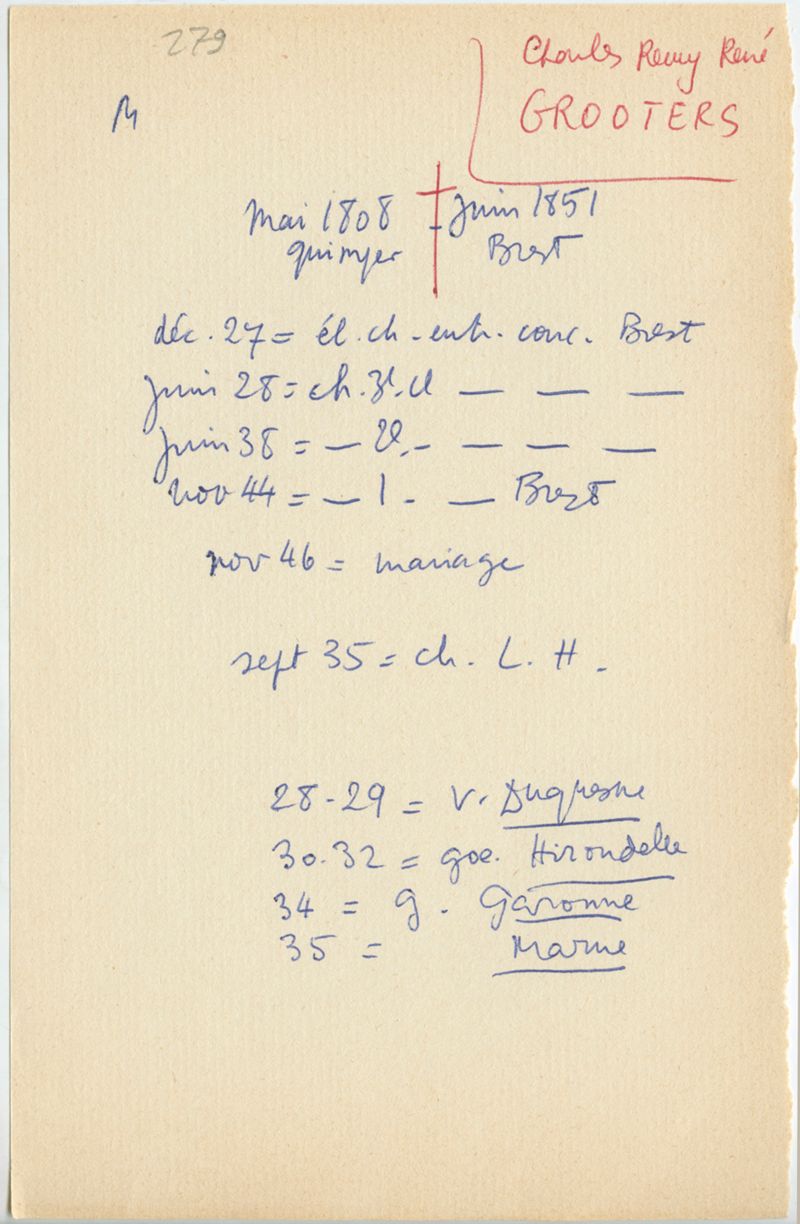 279
Charles Remy René
GROOTERS
M
Mai 1808 † Juin 1851
Quimper - Brest
déc. 27 = él. ch. entr. conc. Brest
Juin 28 = ch. 3e. cl — — —
Juin 38 = — 2e. - — — —
nov 44 = — 1 - — Brest
nov 46 = mariage
sept 35 = ch. L. H.
28-29 = v. Duquesne
30.32 = goe. Hirondelle
34 = g. Garonne
35 = Marne